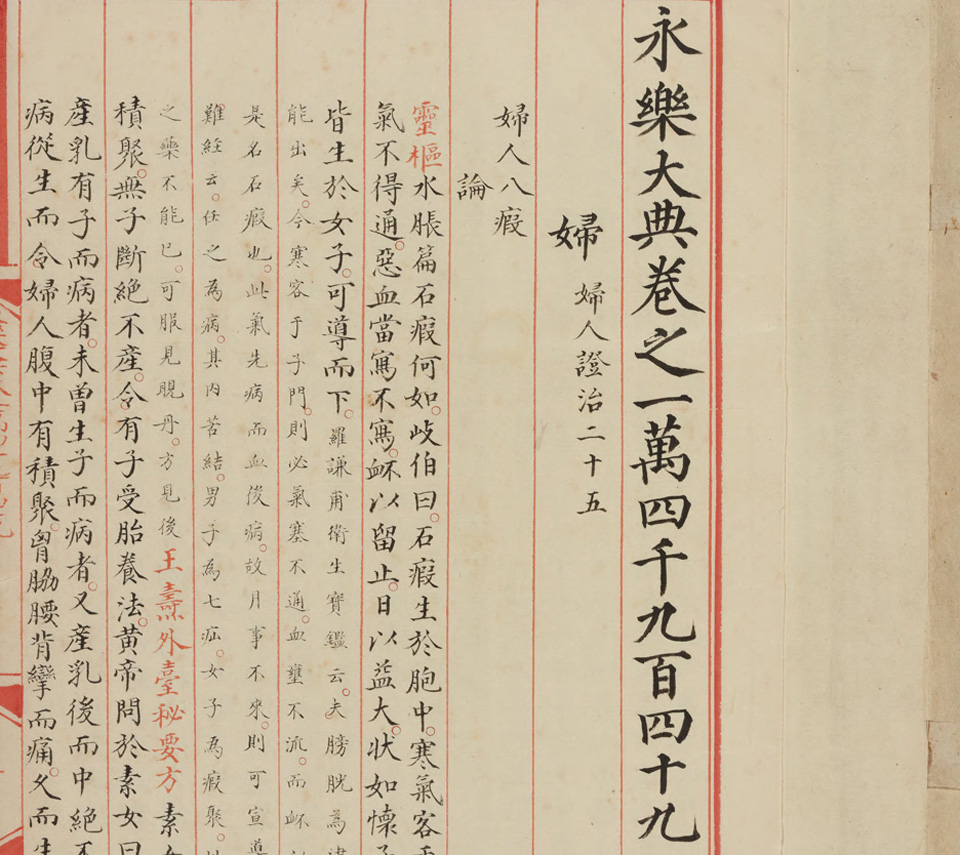 永樂大典卷之一萬四千九百四十九
婦 婦人證治二十五
婦人八瘕
論
靈樞水脹篇石瘕何如岐伯曰石瘕生於胞中寒氣客
氣不得通惡血當寫不寫衃以留止日以益大狀如懷
皆生於女子可導而下羅謙甫衛生寶鑑云夫膀胱為
能出矣今寒客于子門則必氣塞不通血壅不流而衃
是名石瘕也此氣先病而血後病故月事不來則可宣導
難經云任之為病其内苦結男子為七疝女子為瘕聚
之藥不能已可服見晛丹方見後王燾外臺秘要方素女
積聚無子斷絶不產令有子受胎養法黄帝問於素女曰
產乳有子而病者未曾生子而病者又產乳後而中絶
病從生而令婦人腹中有積聚胷脇腰背攣而痛久而生